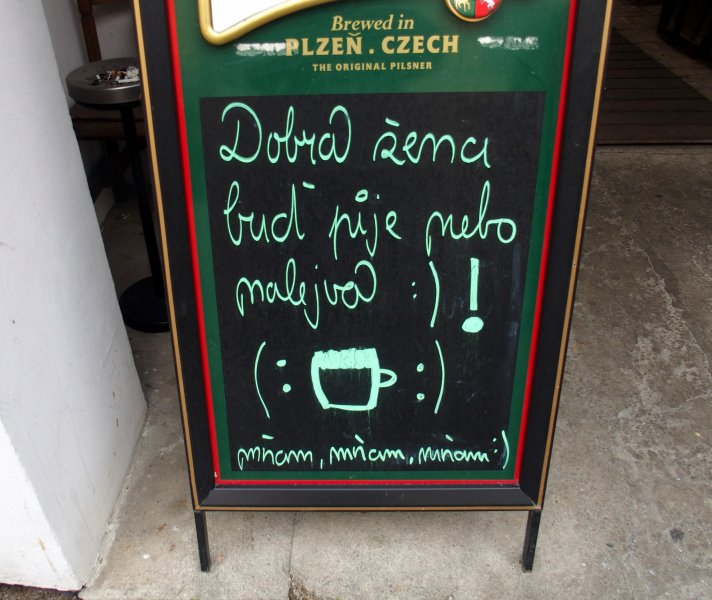 Brewed in
PLZEŇ . CZECH
THE ORIGINAL PILSNER
Dobrá žena
buď pije nebo
nalejvá :) !
(: :)
mňam, mňam, mňam :)